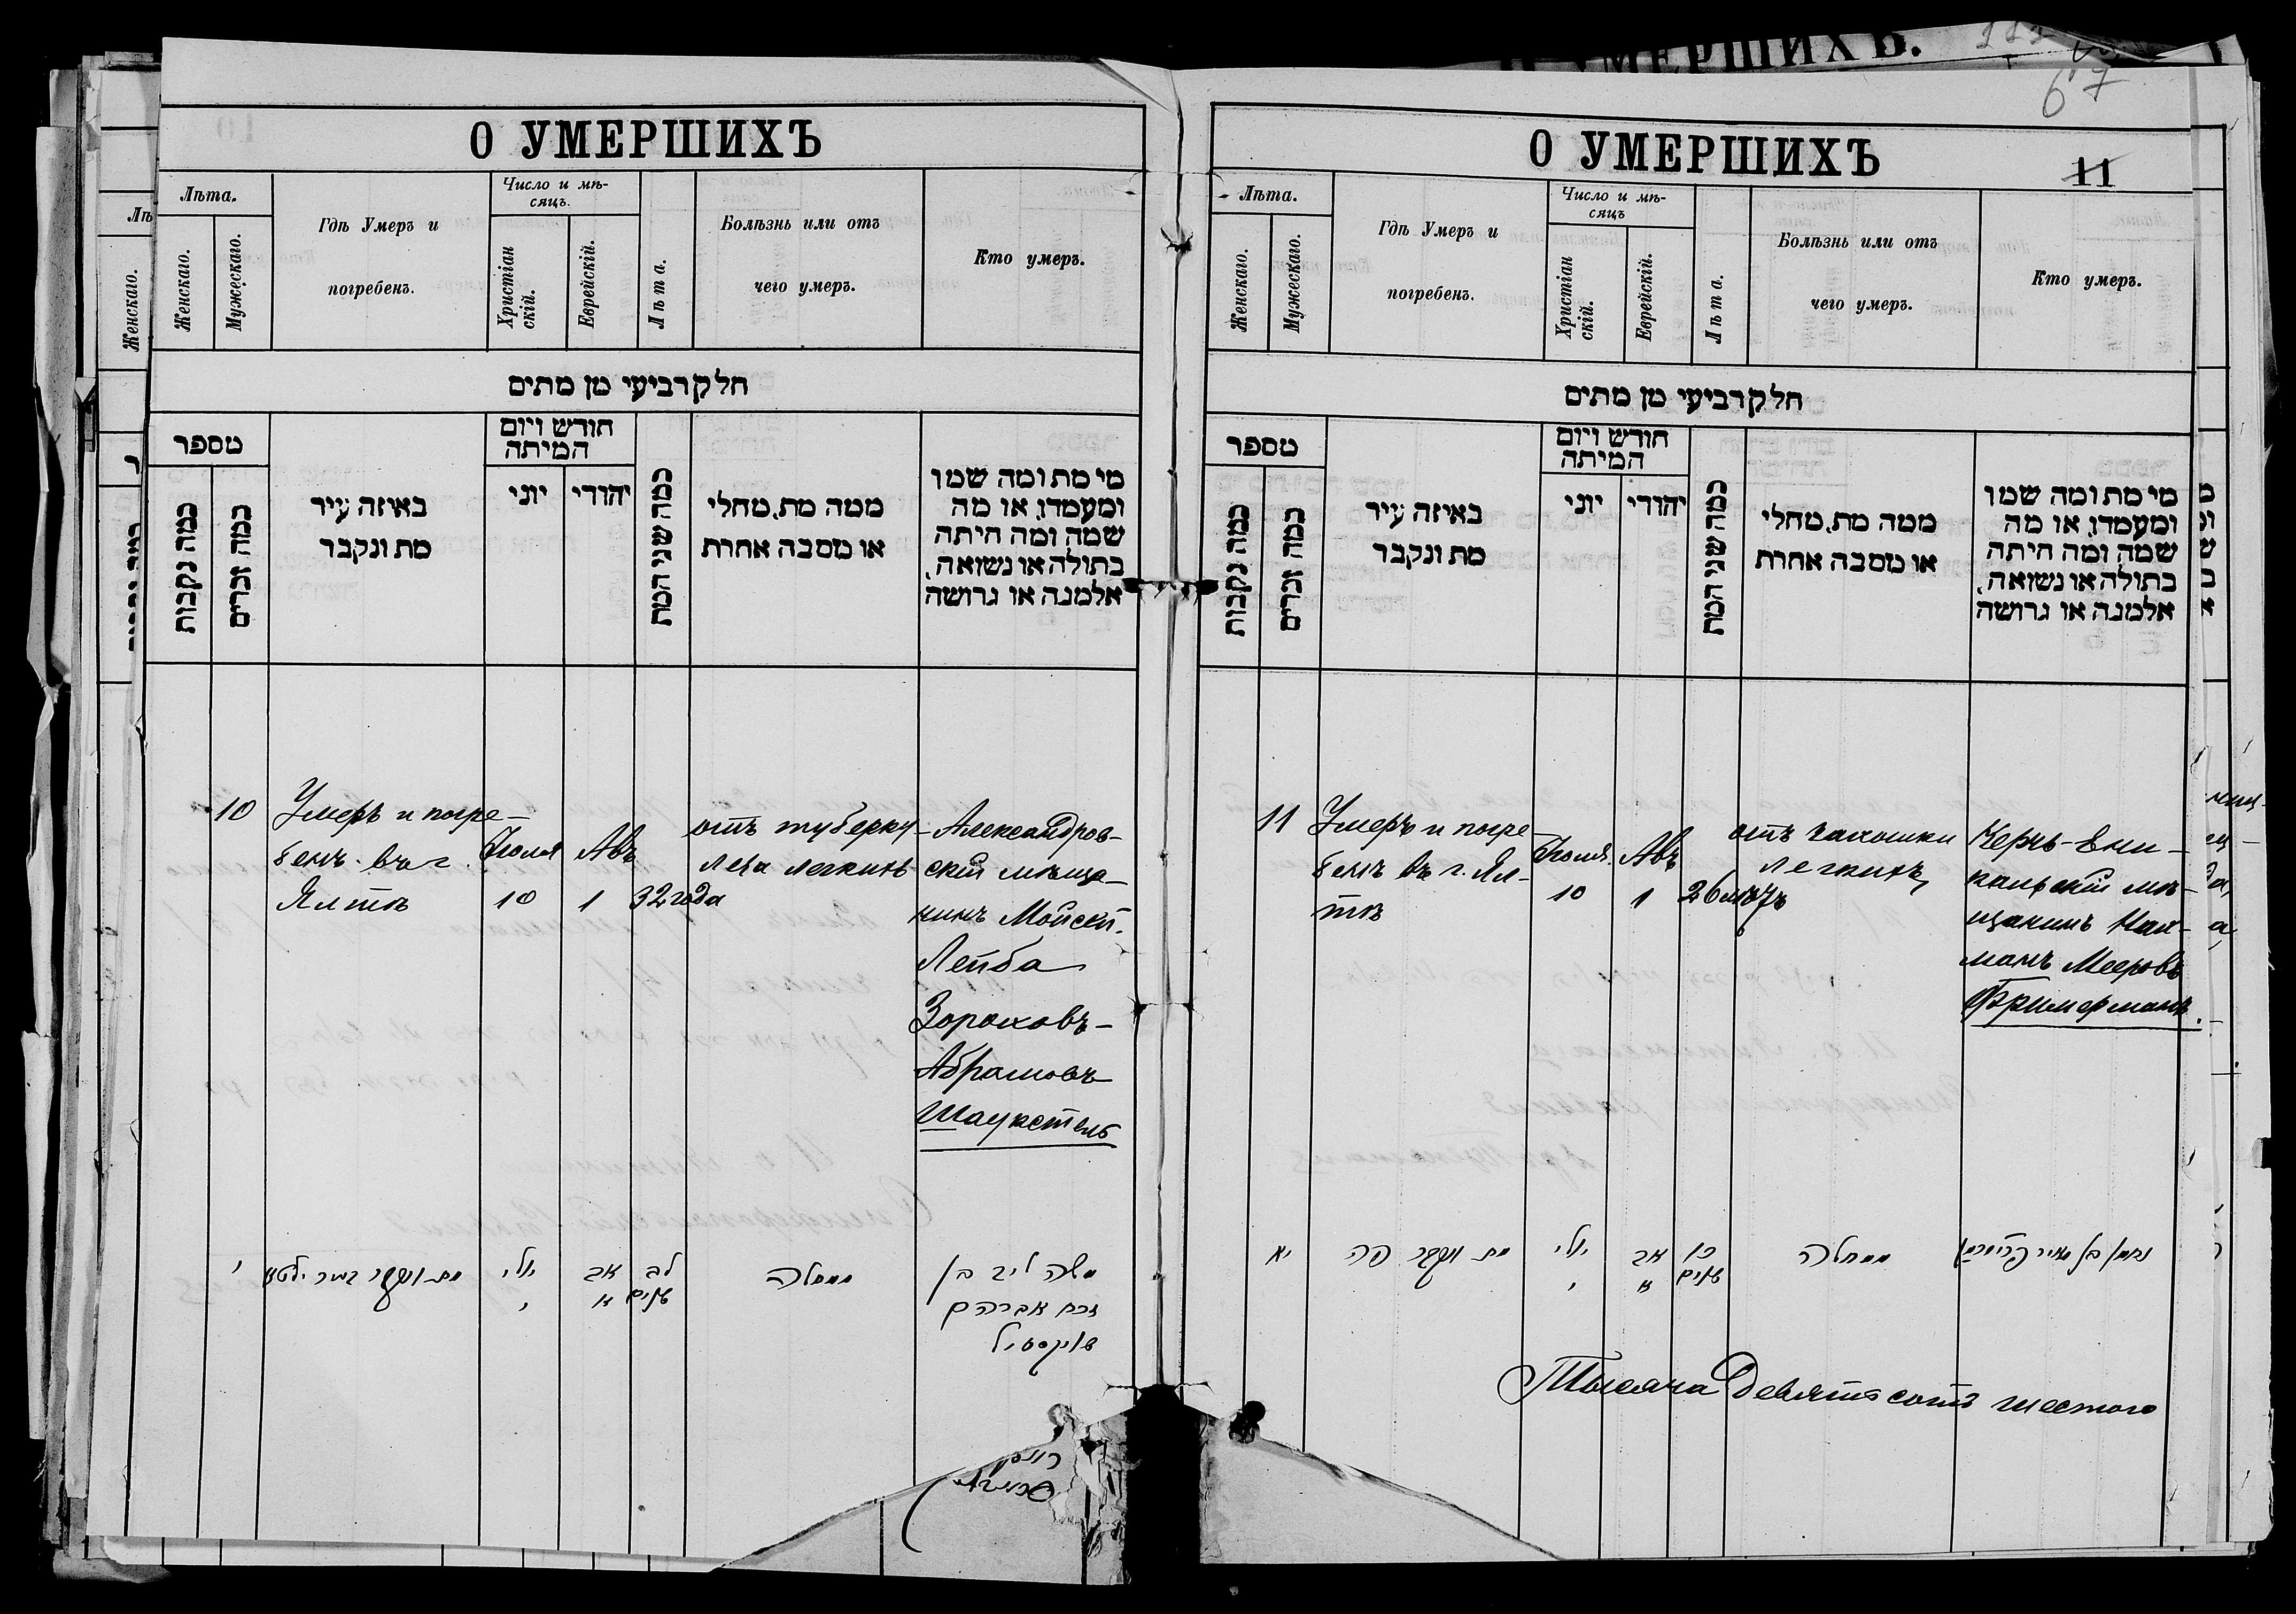 О УМЕРШИХЪ
Лѣта.
Женскаго.
Мужескаго.
Гдѣ Умеръ и
погребенъ.
Число и мѣ-
сяцъ.
Христіан
скій.
Еврейскій.
Лѣта.
Болѣзнь или отъ
чего умеръ.
Кто умеръ.
חלק רביעי מן מתים
מספר
כמה נקבות
כמה זכרים
באיזה עיר
מת ונקבר
חודש ויום
המיתה
יוני
יהודי
כמה שני המת
ממה מת, מחלי
או מסבה אחרת
מי מת ומה שמו
ומעמדו, או מה
שמה ומה היתה
בתולה או נשואה,
אלמנה או גרושה
10
Умеръ и погре-
бенъ въ г.
Ялтѣ
Іюля
10
Авъ
1
32 года
отъ туберку-
леза легкихъ
Александров-
скій мѣща-
нинъ Мойсей-
Лейба
Зораховъ-
Абрамовъ
י
מת ונקבר בעיר ילטא
יולי
י
אב
א
לב
שנים
ממחלה
משה ליב בן
זרח אברהם
О УМЕРШИХЪ
67
11
Лѣта.
Женскаго.
Мужескаго.
Гдѣ Умеръ и
погребенъ.
Число и мѣ-
сяцъ
Христіан
скій.
Еврейскій.
Лѣта.
Болѣзнь или отъ
чего умеръ.
Кто умеръ.
חלק רביעי מן מתים
מספר
כמה נקבות
כמה זכרים
באיזה עיר
מת ונקבר
חודש ויום
המיתה
יוני
יהודי
כמה שני המת
ממה מת, מחלי
או מסבה אחרת
מי מת ומה שמו
ומעמדו, או מה
שמה ומה היתה
בתולה או נשואה,
אלמנה או גרושה
11
Умеръ и погре-
бенъ въ г. Ял-
тѣ
Іюля
10
Авъ
1
26 лѣтъ
отъ чахотки
легкихъ
Керчь-Ени-
кальскій мѣ-
щанинъ Нах-
манъ Мееровъ
Фримерманъ.
יא
מת ונקבר פה
יולי
י
אב
א
כו
שנים
ממחלה
נחמן בן מאיר פרימרמן
Тысяча девятьсотъ шестого